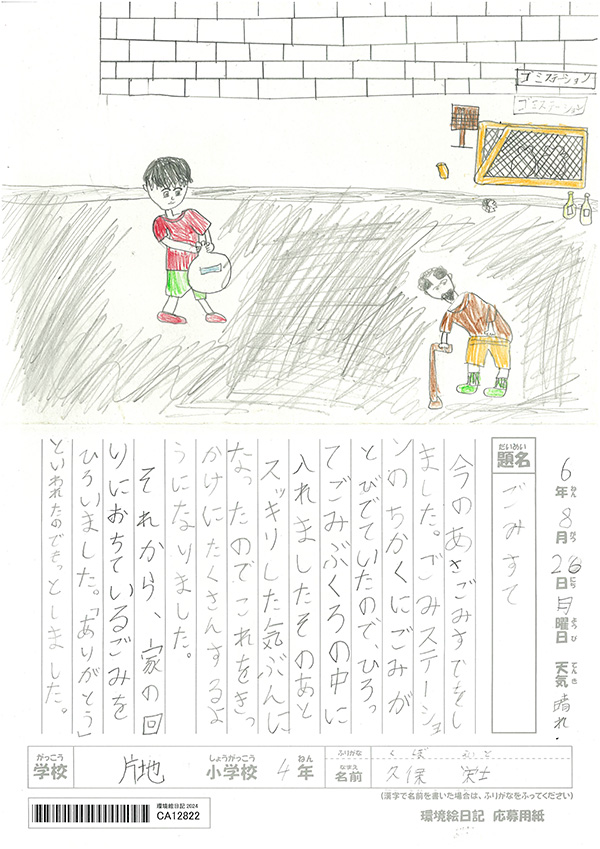 ゴミステーション
ゴミステーション
6年8月26日月曜日 天気 晴れ
ねん がつ にち ようび てんき
だいめい
題名
ごみすて
今のあさごみすてをし
ました。ごみステーショ
ンのちかくにごみが
とびでていたので、ひろっ
てごみぶくろの中に
入れましたそのあと
スッキリした気ぶんに
なったのでこれをきっ
かけにたくさんするよ
うになりました。
それから、家の回
りにおちているごみを
ひろいました。「ありがとう」
といわれたのでもっとしました。
がっこう
学校
片地
しょうがっこう ねん
小学校 4年
ふりがな
なまえ
名前
久保 栄士
(漢字で名前を書いた場合は、ふりがなをふってください)
環境絵日記 2024
CA12822
環境絵日記 応募用紙